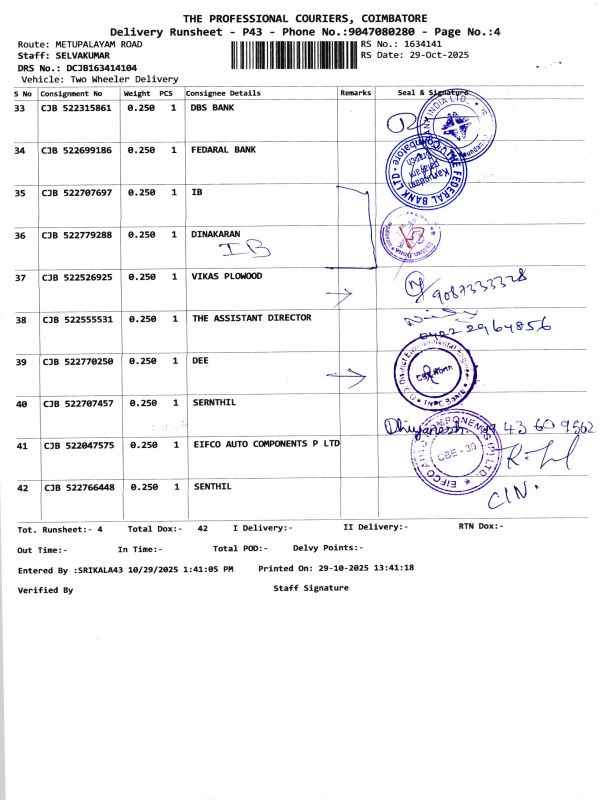 THE PROFESSIONAL COURIERS, COIMBATORE
Delivery Runsheet - P43 - Phone No.:9047080280 - Page No.:4
Route: METUPALAYAM ROAD RS No.: 1634141
Staff: SELVAKUMAR RS Date: 29-Oct-2025
DRS No.: DCJB163414104
Vehicle: Two Wheeler Delivery
S No Consignment No Weight PCS Consignee Details Remarks Seal & Signature
33 CJB 522315861 0.250 1 DBS BANK
34 CJB 522699186 0.250 1 FEDARAL BANK
THE FEDERAL BANK LTD
Coimbatore
Branch
35 CJB 522707697 0.250 1 IB
36 CJB 522779288 0.250 1 DINAKARAN
IB
37 CJB 522526925 0.250 1 VIKAS PLOWOOD
9087333328
38 CJB 522555531 0.250 1 THE ASSISTANT DIRECTOR
0422 2964856
39 CJB 522770250 0.250 1 DEE
District Environmental Engineer
TNPC Board
40 CJB 522707457 0.250 1 SERNTHIL
43 609562
41 CJB 522047575 0.250 1 EIFCO AUTO COMPONENTS P LTD
EIFCO AUTO COMPONENTS (P) LTD.
CBE - 30
42 CJB 522766448 0.250 1 SENTHIL
CIN.
Tot. Runsheet:- 4 Total Dox:- 42 I Delivery:- II Delivery:- RTN Dox:-
Out Time:- In Time:- Total POD:- Delvy Points:-
Entered By :SRIKALA43 10/29/2025 1:41:05 PM Printed On: 29-10-2025 13:41:18
Verified By Staff Signature